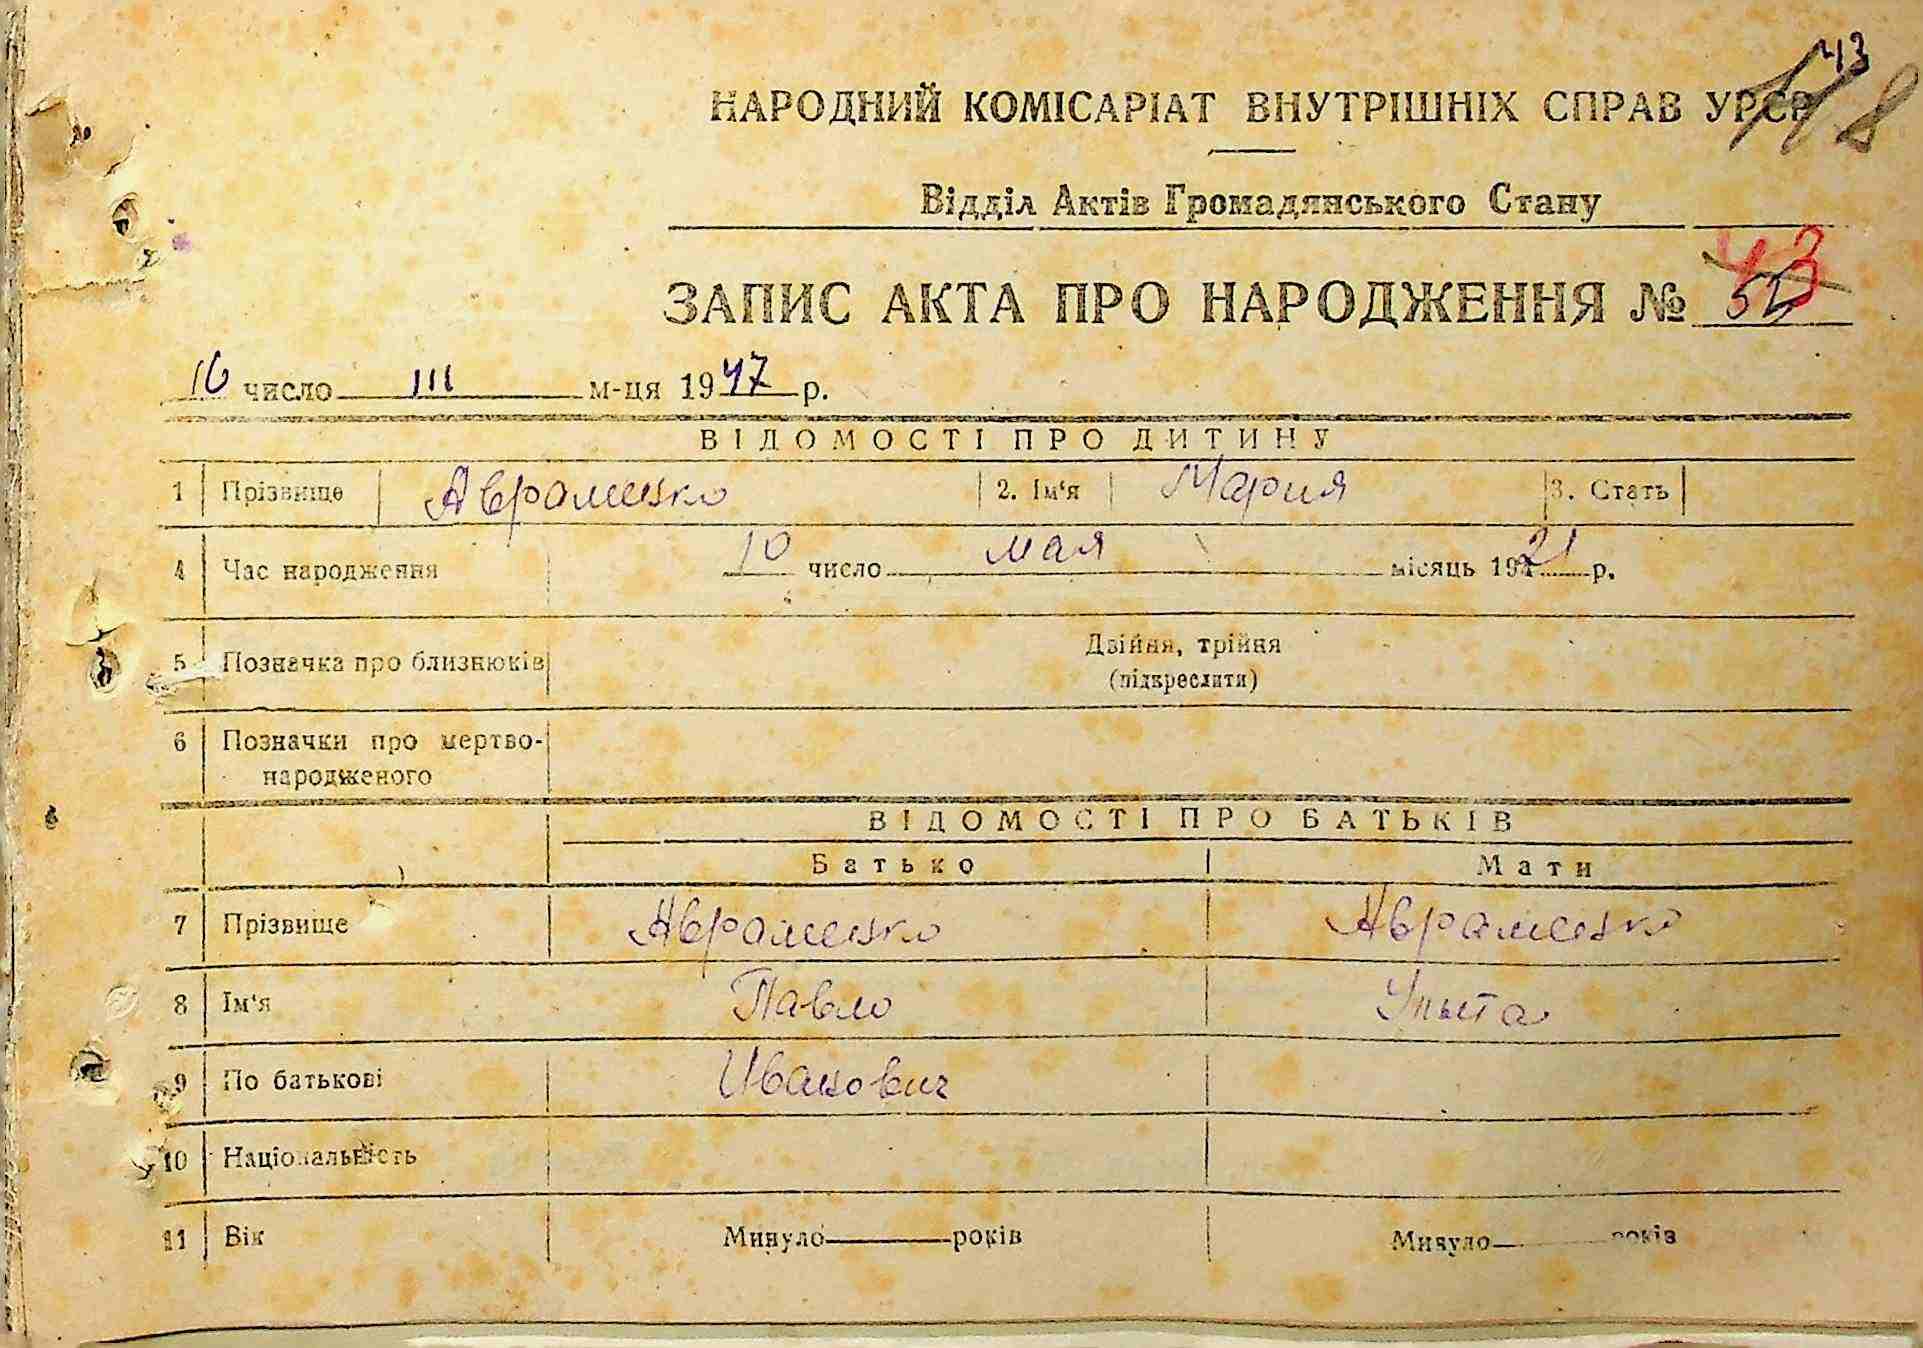 43
118
НАРОДНИЙ КОМІСАРІАТ ВНУТРІШНІХ СПРАВ УРСР
Відділ Актів Громадянського Стану
43
ЗАПИС АКТА ПРО НАРОДЖЕННЯ № 52
16 число III м-ця 1947 р.
ВІДОМОСТІ ПРО ДИТИНУ
1 Прізвище Авраменко 2. Ім'я Мария 3. Стать
4 Час народження 10 число мая місяць 1921 р.
5 Позначка про близнюків Двійня, трійня
(підкреслити)
6 Позначки про мертво-
народженого
ВІДОМОСТІ ПРО БАТЬКІВ
Батько Мати
7 Прізвище Авраменко Авраменко
8 Ім'я Павло
9 По батькові Иванович
10 Національність
11 Вік Минуло років Минуло років